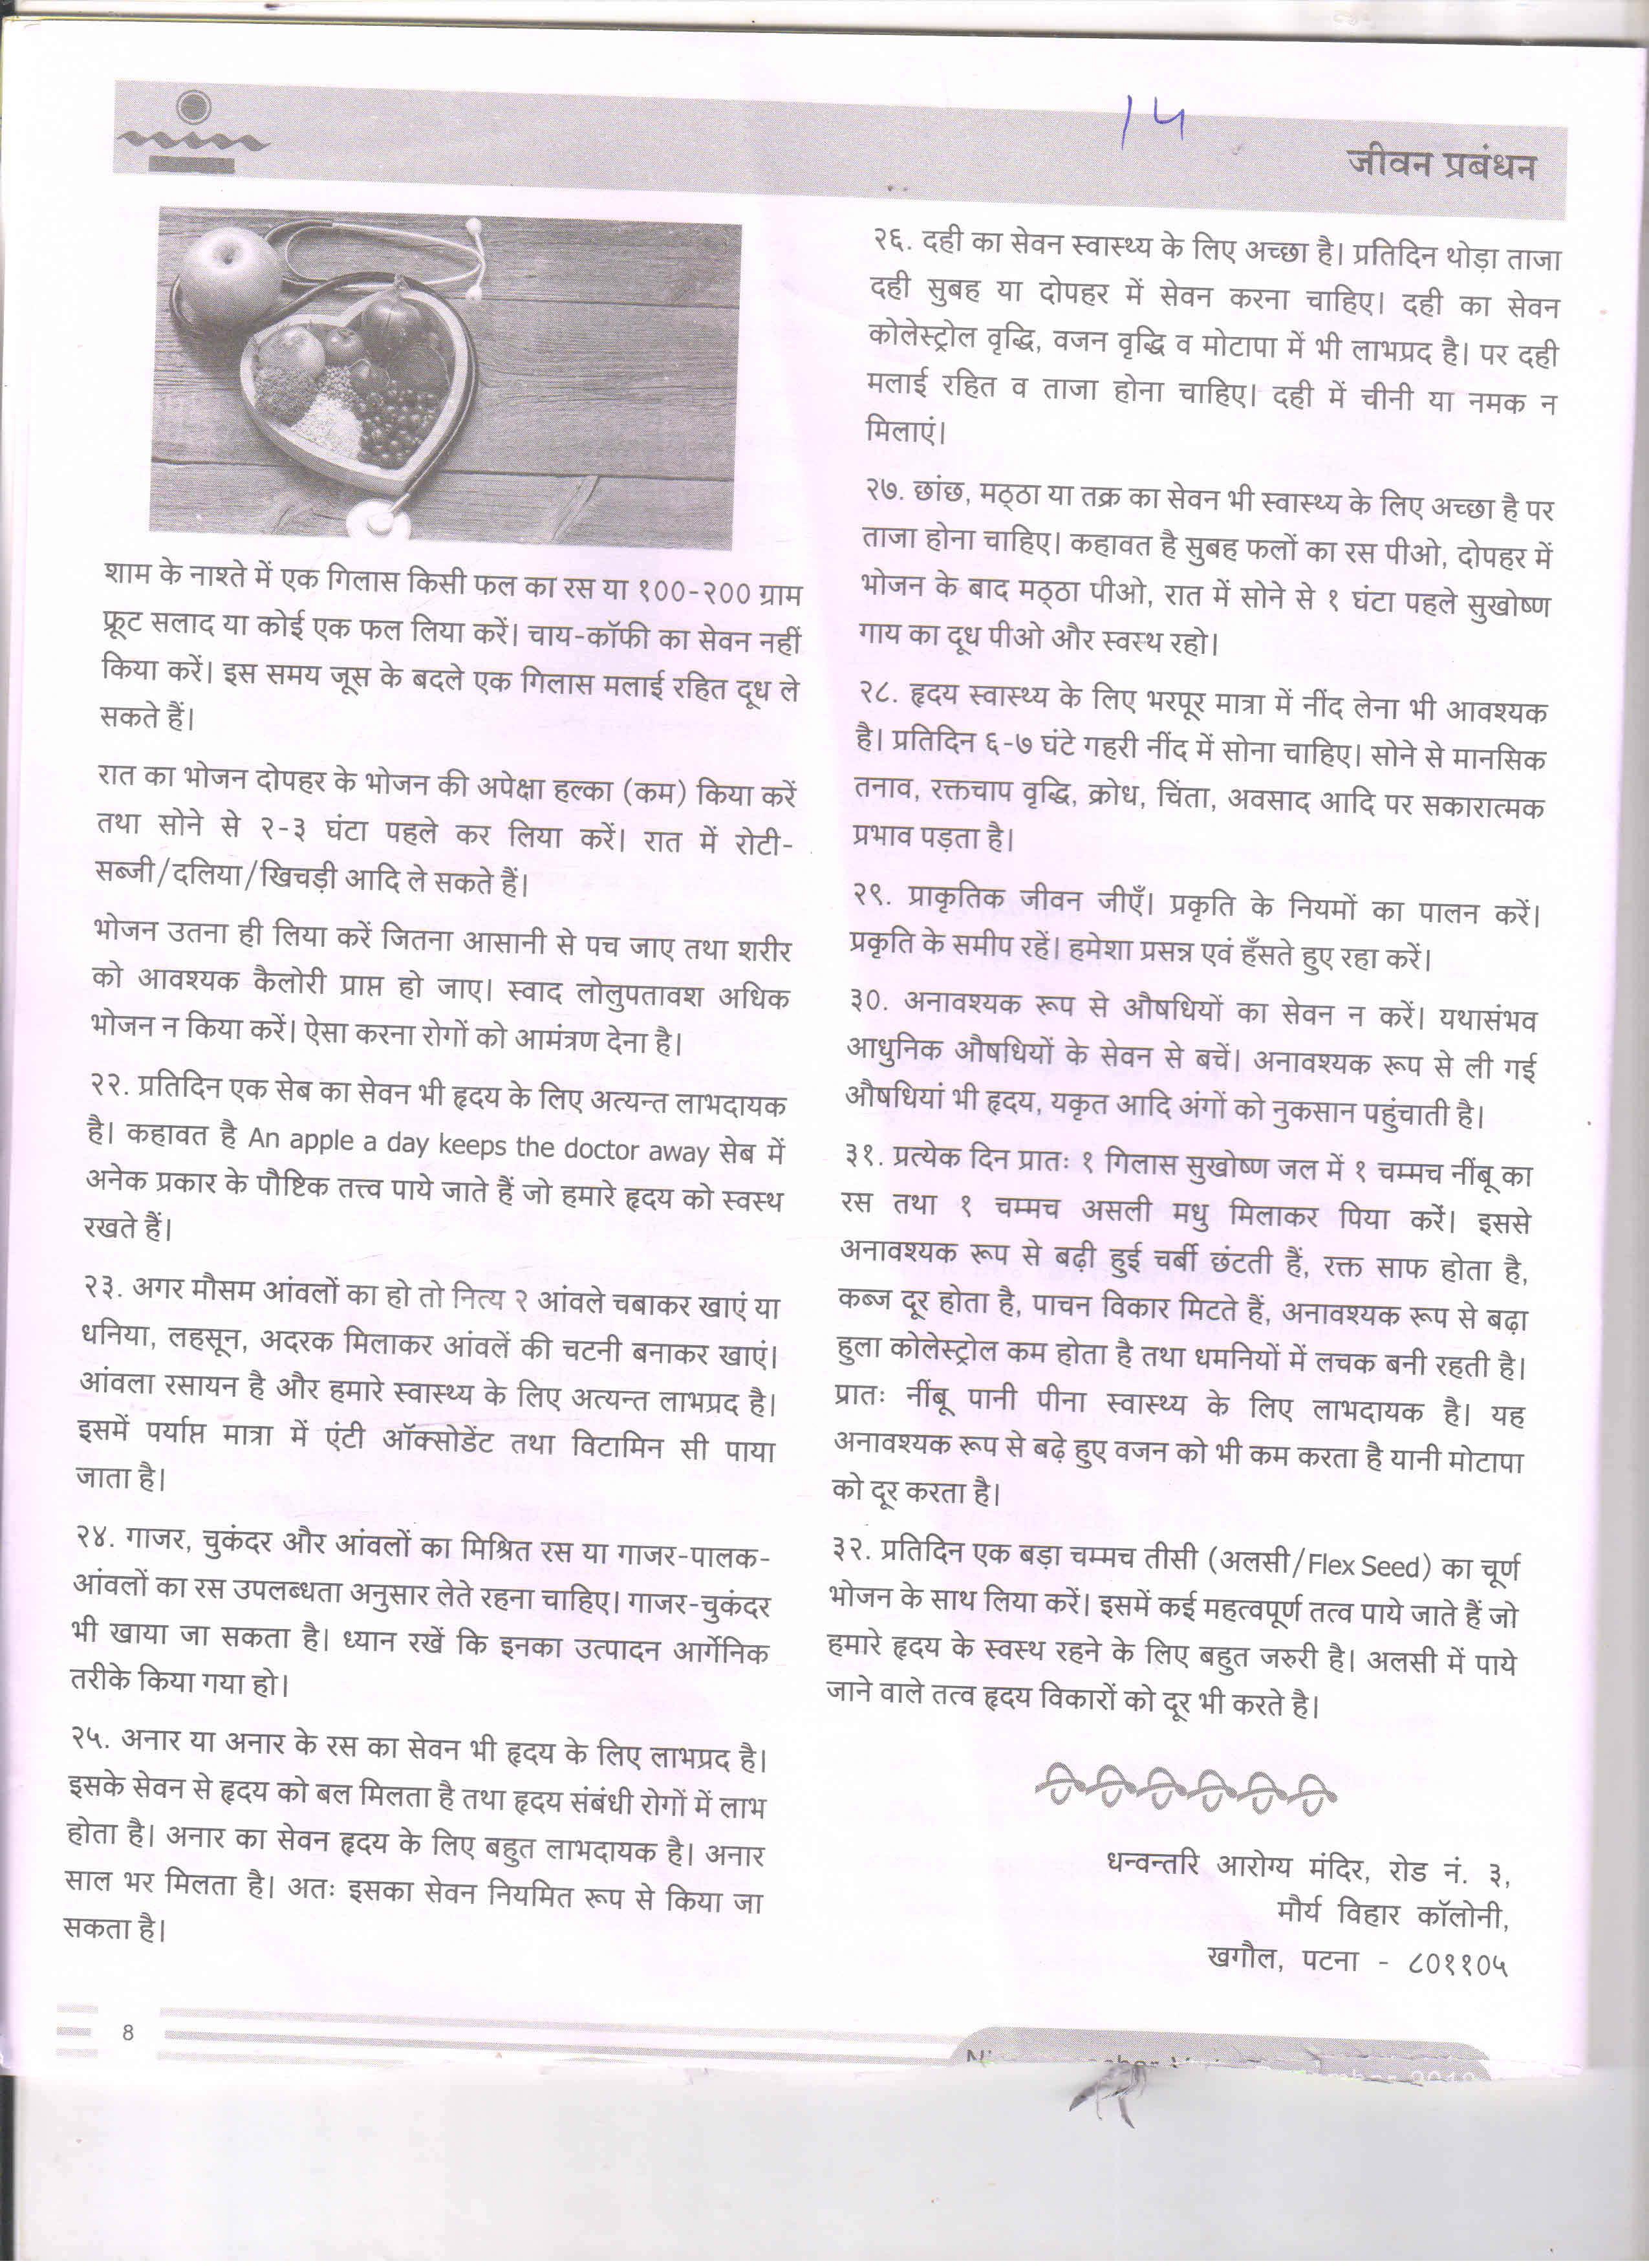 14
जीवन प्रबंधन
शाम के नाश्ते में एक गिलास किसी फल का रस या १००-२०० ग्राम
फ्रूट सलाद या कोई एक फल लिया करें। चाय-कॉफी का सेवन नहीं
किया करें। इस समय जूस के बदले एक गिलास मलाई रहित दूध ले
सकते हैं।
रात का भोजन दोपहर के भोजन की अपेक्षा हल्का (कम) किया करें
तथा सोने से २-३ घंटा पहले कर लिया करें। रात में रोटी-
सब्जी/दलिया/खिचड़ी आदि ले सकते हैं।
भोजन उतना ही लिया करें जितना आसानी से पच जाए तथा शरीर
को आवश्यक कैलोरी प्राप्त हो जाए। स्वाद लोलुपतावश अधिक
भोजन न किया करें। ऐसा करना रोगों को आमंत्रण देना है।
२२. प्रतिदिन एक सेब का सेवन भी हृदय के लिए अत्यन्त लाभदायक
है। कहावत है An apple a day keeps the doctor away सेब में
अनेक प्रकार के पौष्टिक तत्त्व पाये जाते हैं जो हमारे हृदय को स्वस्थ
रखते हैं।
२३. अगर मौसम आंवलों का हो तो नित्य २ आंवले चबाकर खाएं या
धनिया, लहसून, अदरक मिलाकर आंवलें की चटनी बनाकर खाएं।
आंवला रसायन है और हमारे स्वास्थ्य के लिए अत्यन्त लाभप्रद है।
इसमें पर्याप्त मात्रा में एंटी ऑक्सोडेंट तथा विटामिन सी पाया
जाता है।
२४. गाजर, चुकंदर और आंवलों का मिश्रित रस या गाजर-पालक-
आंवलों का रस उपलब्धता अनुसार लेते रहना चाहिए। गाजर-चुकंदर
भी खाया जा सकता है। ध्यान रखें कि इनका उत्पादन आर्गेनिक
तरीके किया गया हो।
२५. अनार या अनार के रस का सेवन भी हृदय के लिए लाभप्रद है।
इसके सेवन से हृदय को बल मिलता है तथा हृदय संबंधी रोगों में लाभ
होता है। अनार का सेवन हृदय के लिए बहुत लाभदायक है। अनार
साल भर मिलता है। अतः इसका सेवन नियमित रूप से किया जा
सकता है।
२६. दही का सेवन स्वास्थ्य के लिए अच्छा है। प्रतिदिन थोड़ा ताजा
दही सुबह या दोपहर में सेवन करना चाहिए। दही का सेवन
कोलेस्ट्रोल वृद्धि, वजन वृद्धि व मोटापा में भी लाभप्रद है। पर दही
मलाई रहित व ताजा होना चाहिए। दही में चीनी या नमक न
मिलाएं।
२७. छांछ, मठ्ठा या तक्र का सेवन भी स्वास्थ्य के लिए अच्छा है पर
ताजा होना चाहिए। कहावत है सुबह फलों का रस पीओ, दोपहर में
भोजन के बाद मठ्ठा पीओ, रात में सोने से १ घंटा पहले सुखोष्ण
गाय का दूध पीओ और स्वस्थ रहो।
२८. हृदय स्वास्थ्य के लिए भरपूर मात्रा में नींद लेना भी आवश्यक
है। प्रतिदिन ६-७ घंटे गहरी नींद में सोना चाहिए। सोने से मानसिक
तनाव, रक्तचाप वृद्धि, क्रोध, चिंता, अवसाद आदि पर सकारात्मक
प्रभाव पड़ता है।
२९. प्राकृतिक जीवन जीएँ। प्रकृति के नियमों का पालन करें।
प्रकृति के समीप रहें। हमेशा प्रसन्न एवं हँसते हुए रहा करें।
३०. अनावश्यक रूप से औषधियों का सेवन न करें। यथासंभव
आधुनिक औषधियों के सेवन से बचें। अनावश्यक रूप से ली गई
औषधियां भी हृदय, यकृत आदि अंगों को नुकसान पहुंचाती है।
३१. प्रत्येक दिन प्रातः १ गिलास सुखोष्ण जल में १ चम्मच नींबू का
रस तथा १ चम्मच असली मधु मिलाकर पिया करें। इससे
अनावश्यक रूप से बढ़ी हुई चर्बी छंटती हैं, रक्त साफ होता है,
कब्ज दूर होता है, पाचन विकार मिटते हैं, अनावश्यक रूप से बढ़ा
हुला कोलेस्ट्रोल कम होता है तथा धमनियों में लचक बनी रहती है।
प्रातः नींबू पानी पीना स्वास्थ्य के लिए लाभदायक है। यह
अनावश्यक रूप से बढ़े हुए वजन को भी कम करता है यानी मोटापा
को दूर करता है।
३२. प्रतिदिन एक बड़ा चम्मच तीसी (अलसी/Flex Seed) का चूर्ण
भोजन के साथ लिया करें। इसमें कई महत्वपूर्ण तत्व पाये जाते हैं जो
हमारे हृदय के स्वस्थ रहने के लिए बहुत जरुरी है। अलसी में पाये
जाने वाले तत्व हृदय विकारों को दूर भी करते है।
धन्वन्तरि आरोग्य मंदिर, रोड नं. ३,
मौर्य विहार कॉलोनी,
खगौल, पटना - ८०११०५
8